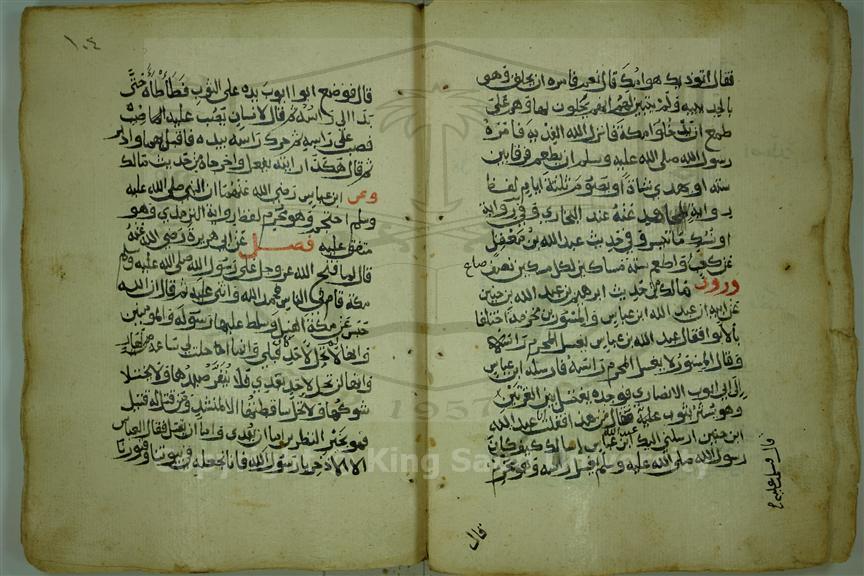 فقال اتوذيك هوامك قال نعم فامره ان يحلق وهو
بالحديبيه ولم يتبين لهم انهم يحلون بها وهم على
طمع ان يدخلوا مكة فانزل الله الفديه فامره
رسول الله صلى الله عليه وسلم ان يطعم فرقا بين
سته او يهدي شاة او يصوم ثلثة ايام لفظ
رواية مجاهد عنه عند البخاري وفي رواية
او نسك ما تيسر وفي حديث عبد الله بن معقل
عن كعب واطعم سته مساكين لكل مسكين نصف صاع
وروى مالك من حديث ابرهيم بن عبد الله بن حنين
عن ابيه ان عبد الله ابن عباس والمسور بن مخرمة اختلفا
بالابوا فقال عبد الله ابن عباس يغسل المحرم راسه
وقال المسور لا يغسل المحرم راسه فارسله ابن عباس
الى ابي ايوب الانصاري فوجده يغتسل بين القرنين
وهو يستر بثوب عليه فقال من هذا فقلت عبد الله
ابن حنين ارسلني اليك ابن عباس اسالك كيف كان
رسول الله صلى الله عليه وسلم يغسل راسه وهو محرم
قال
١٠٤
قال فوضع ابو ايوب يده على الثوب فطأطأه حتى
بدا الي راسه ثم قال لانسان يصب عليه الما صب
فصب على راسه ثم حرك راسه بيده فاقبل بهما وادبر
ثم قال هكذا رايته يفعل واخرجاه من حديث مالك
وعن ابن عباس رضي الله عنهما ان النبي صلى الله عليه
وسلم احتجم وهو محرم لفظ رواية الترمذي وهو
متفق عليه فصل عن ابي هريرة رضي الله عنه
قال لما فتح الله عز وجل على رسول الله صلى الله عليه وسلم
مكة قام في الناس فحمد الله واثنى عليه ثم قال ان الله
حبس عن مكة الفيل وسلط عليها رسوله والمومنين
وانها لا تحل لاحد قبلي وانما احلت لي ساعة من نهار
وانها لن تحل لاحد بعدي فلا ينفر صيدها ولا يختلا
شوكها ولا تحل ساقطتها الا لمنشد ومن قتل له قتيل
فهو بخير النظرين اما ان يفدى واما ان يقتل فقال العباس
الا الاذخر يا رسول الله فانا نجعله في بيوتنا وقبورنا